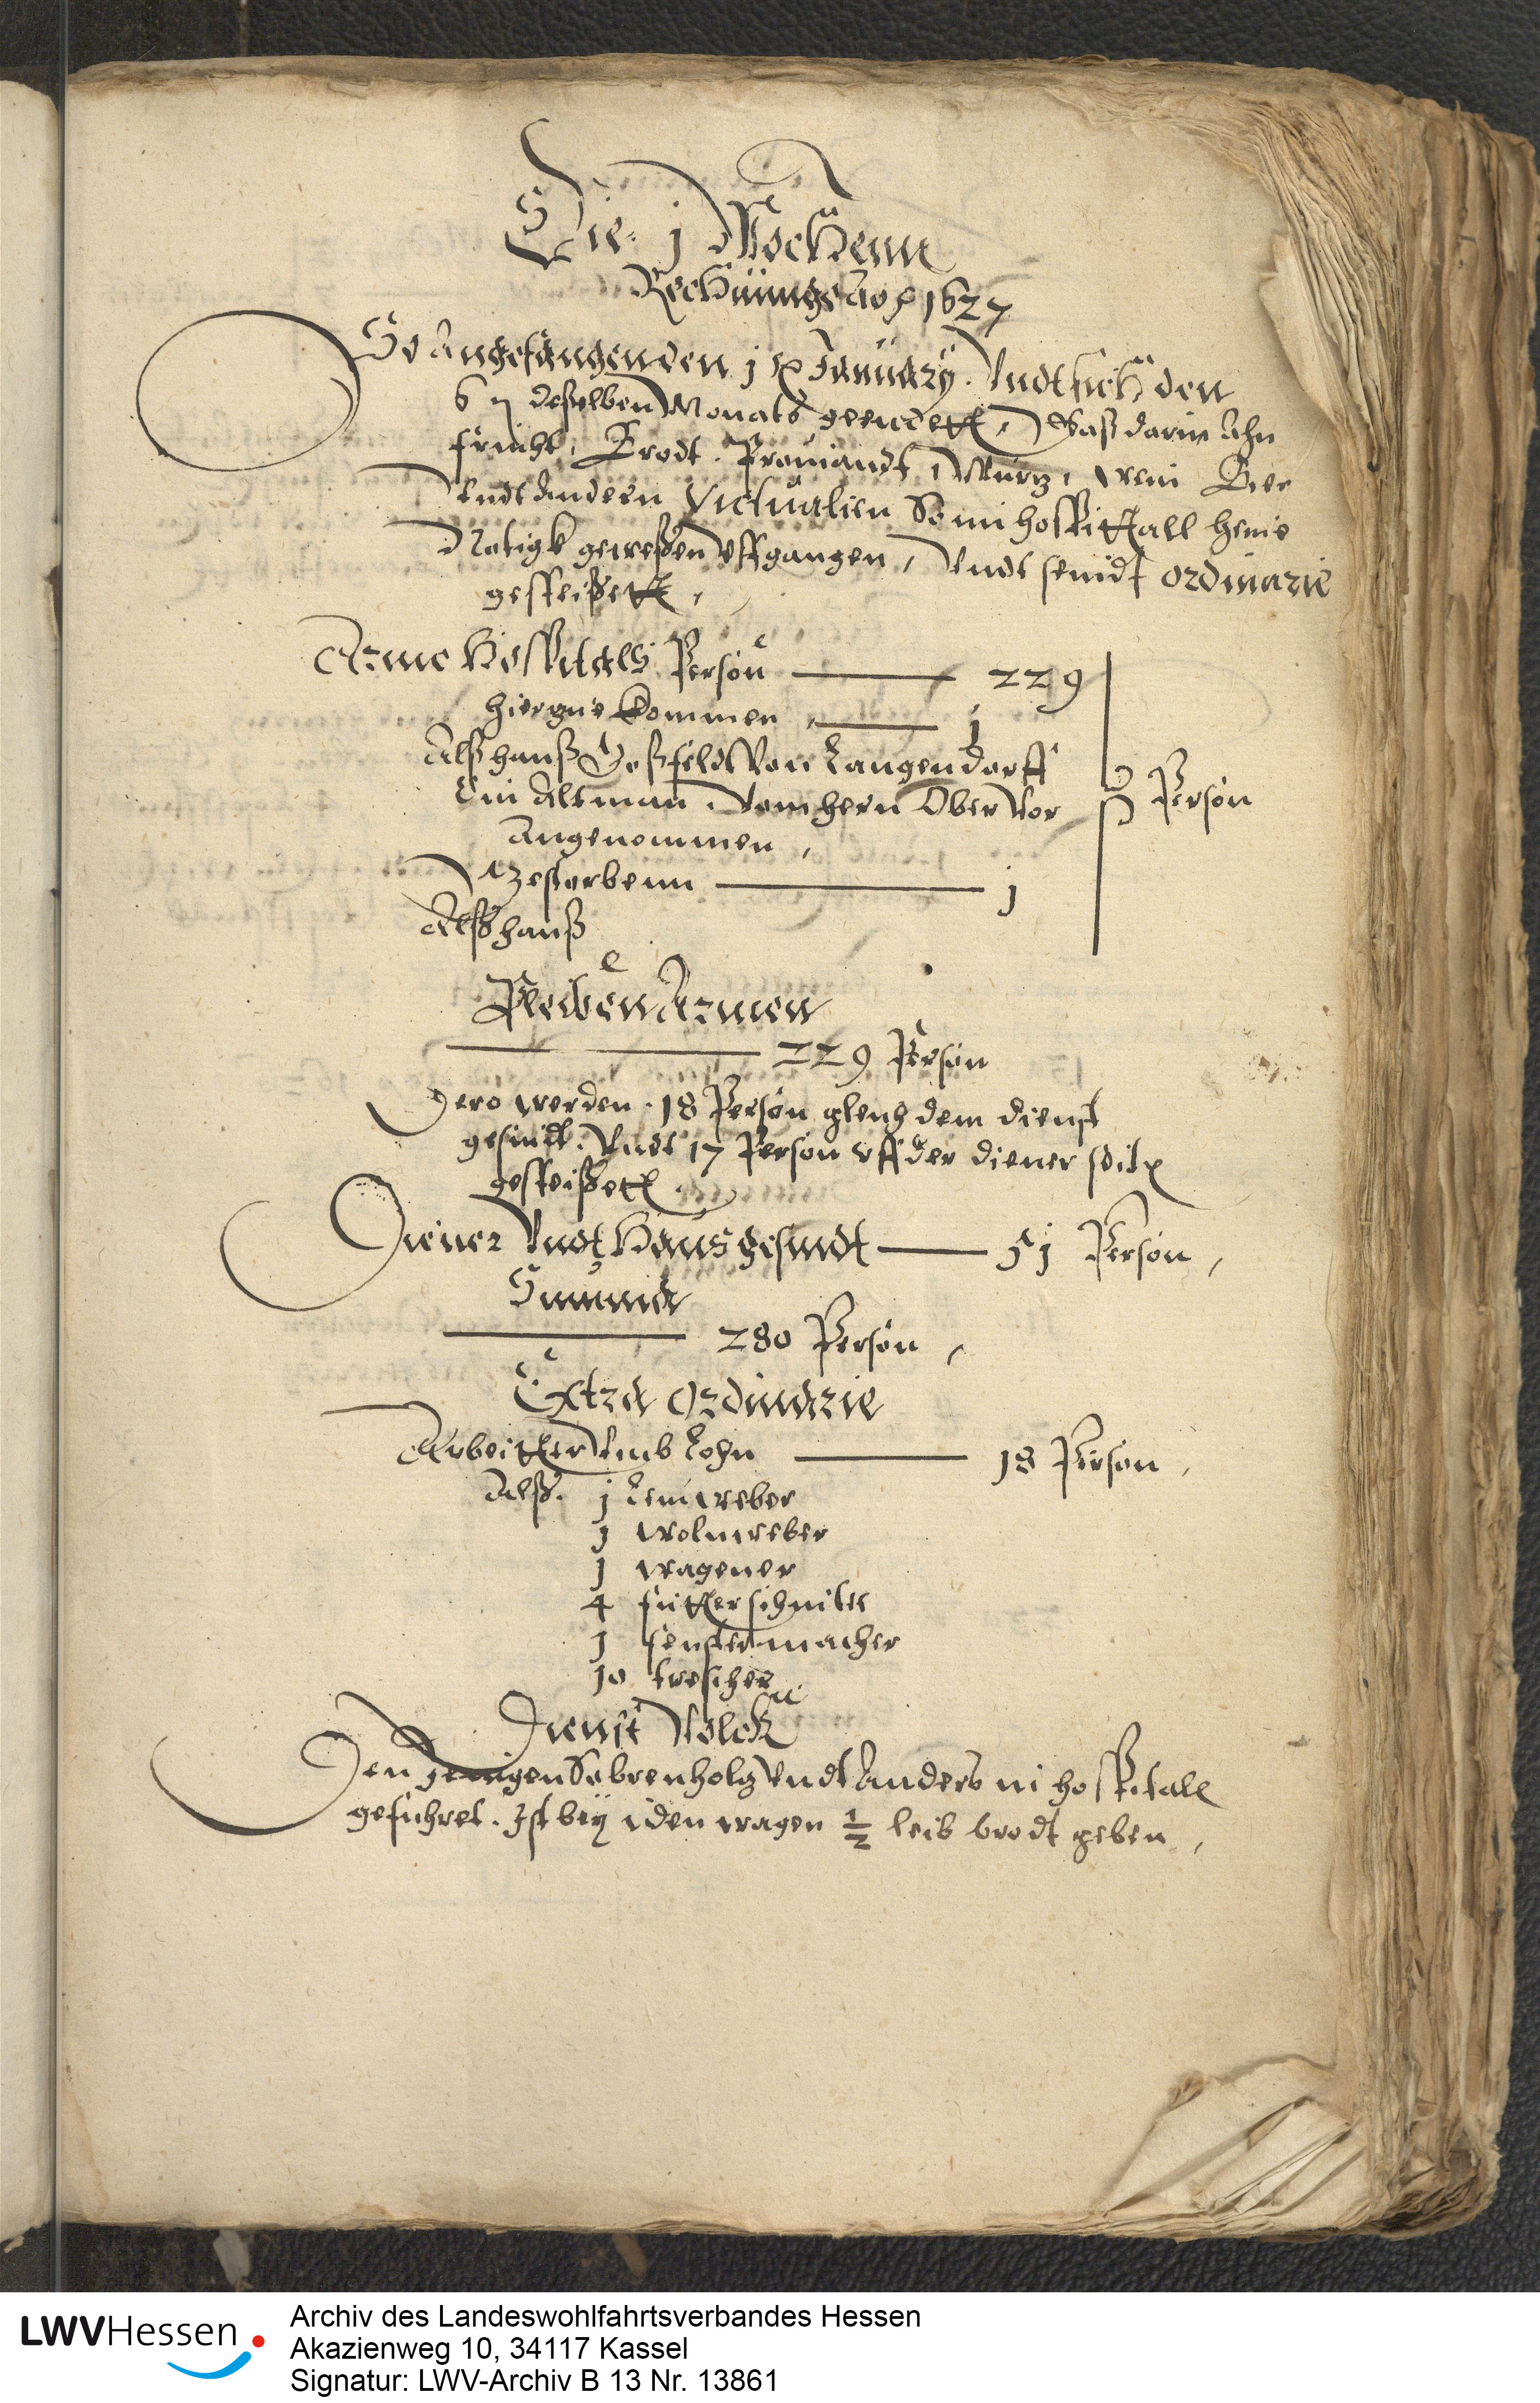 Die j Wochenn
Rechnung Ao 1627
So Angefangen den j Januarÿ. Vndt sich den
6 deßelben Monats geendett, Waß darin Ahn
frucht, Brodt. Prouiandt, Würtz, Wein Bier
Vndt Andern Victualien So im hospittall heine
Notigk geweßen vffgangen, Vndt seindt ordinarie
gespeißett,
Arme Hospitals Person 229
hierzue kommen, j
Alß hanß Goßfeldt Von Langendorff
Ein Altman, Vom hern Ober Vor
Angenommen,
Gestorbenn j
Alß hanß
Person
Pleiben Armen
229 Person
Dero werden. 18 Person gleich dem dienst
gesindt. Vndt 17 Person vff der diener seite
gespeißett.
Diener Vndt Hausgesindt 51 Person,
Summa
280 Person,
Extra Ordinarie
Arbeitter Vmb Lohn 18 Person,
Alß. j Leinweber
j wolnweber
j wagener
4 futterschnitter
j fenstermacher
10 trescher
Dienst Volck
Den jenigen So brenholtz Vndt Anders in hospitall
gefuhret. Ist bey iden wagen 1/2 leib brodt geben,
LWVHessen
Archiv des Landeswohlfahrtsverbandes Hessen
Akazienweg 10, 34117 Kassel
Signatur: LWV-Archiv B 13 Nr. 13861